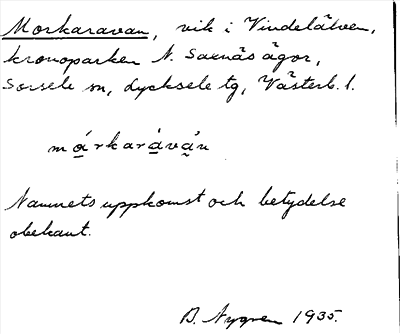 Morkaravan, vik i Vindelälven,
kronoparken N. Saxnäs ägor,
Sorsele sn, Lycksele tg, Västerb. l.
márkaráván
Namnets uppkomst och betydelse
obekant.
B. Nygren 1935.